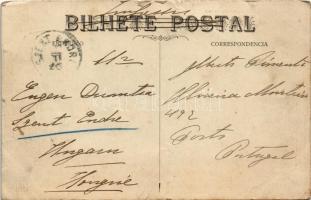 BILHETE POSTAL
CORRESPONDENCIA
Eugen Dumtsa
Szent Endre
Ungarn
Hongrie
Alberto Pimenta
Oliveira Monteiro
492
Porto
Portugal